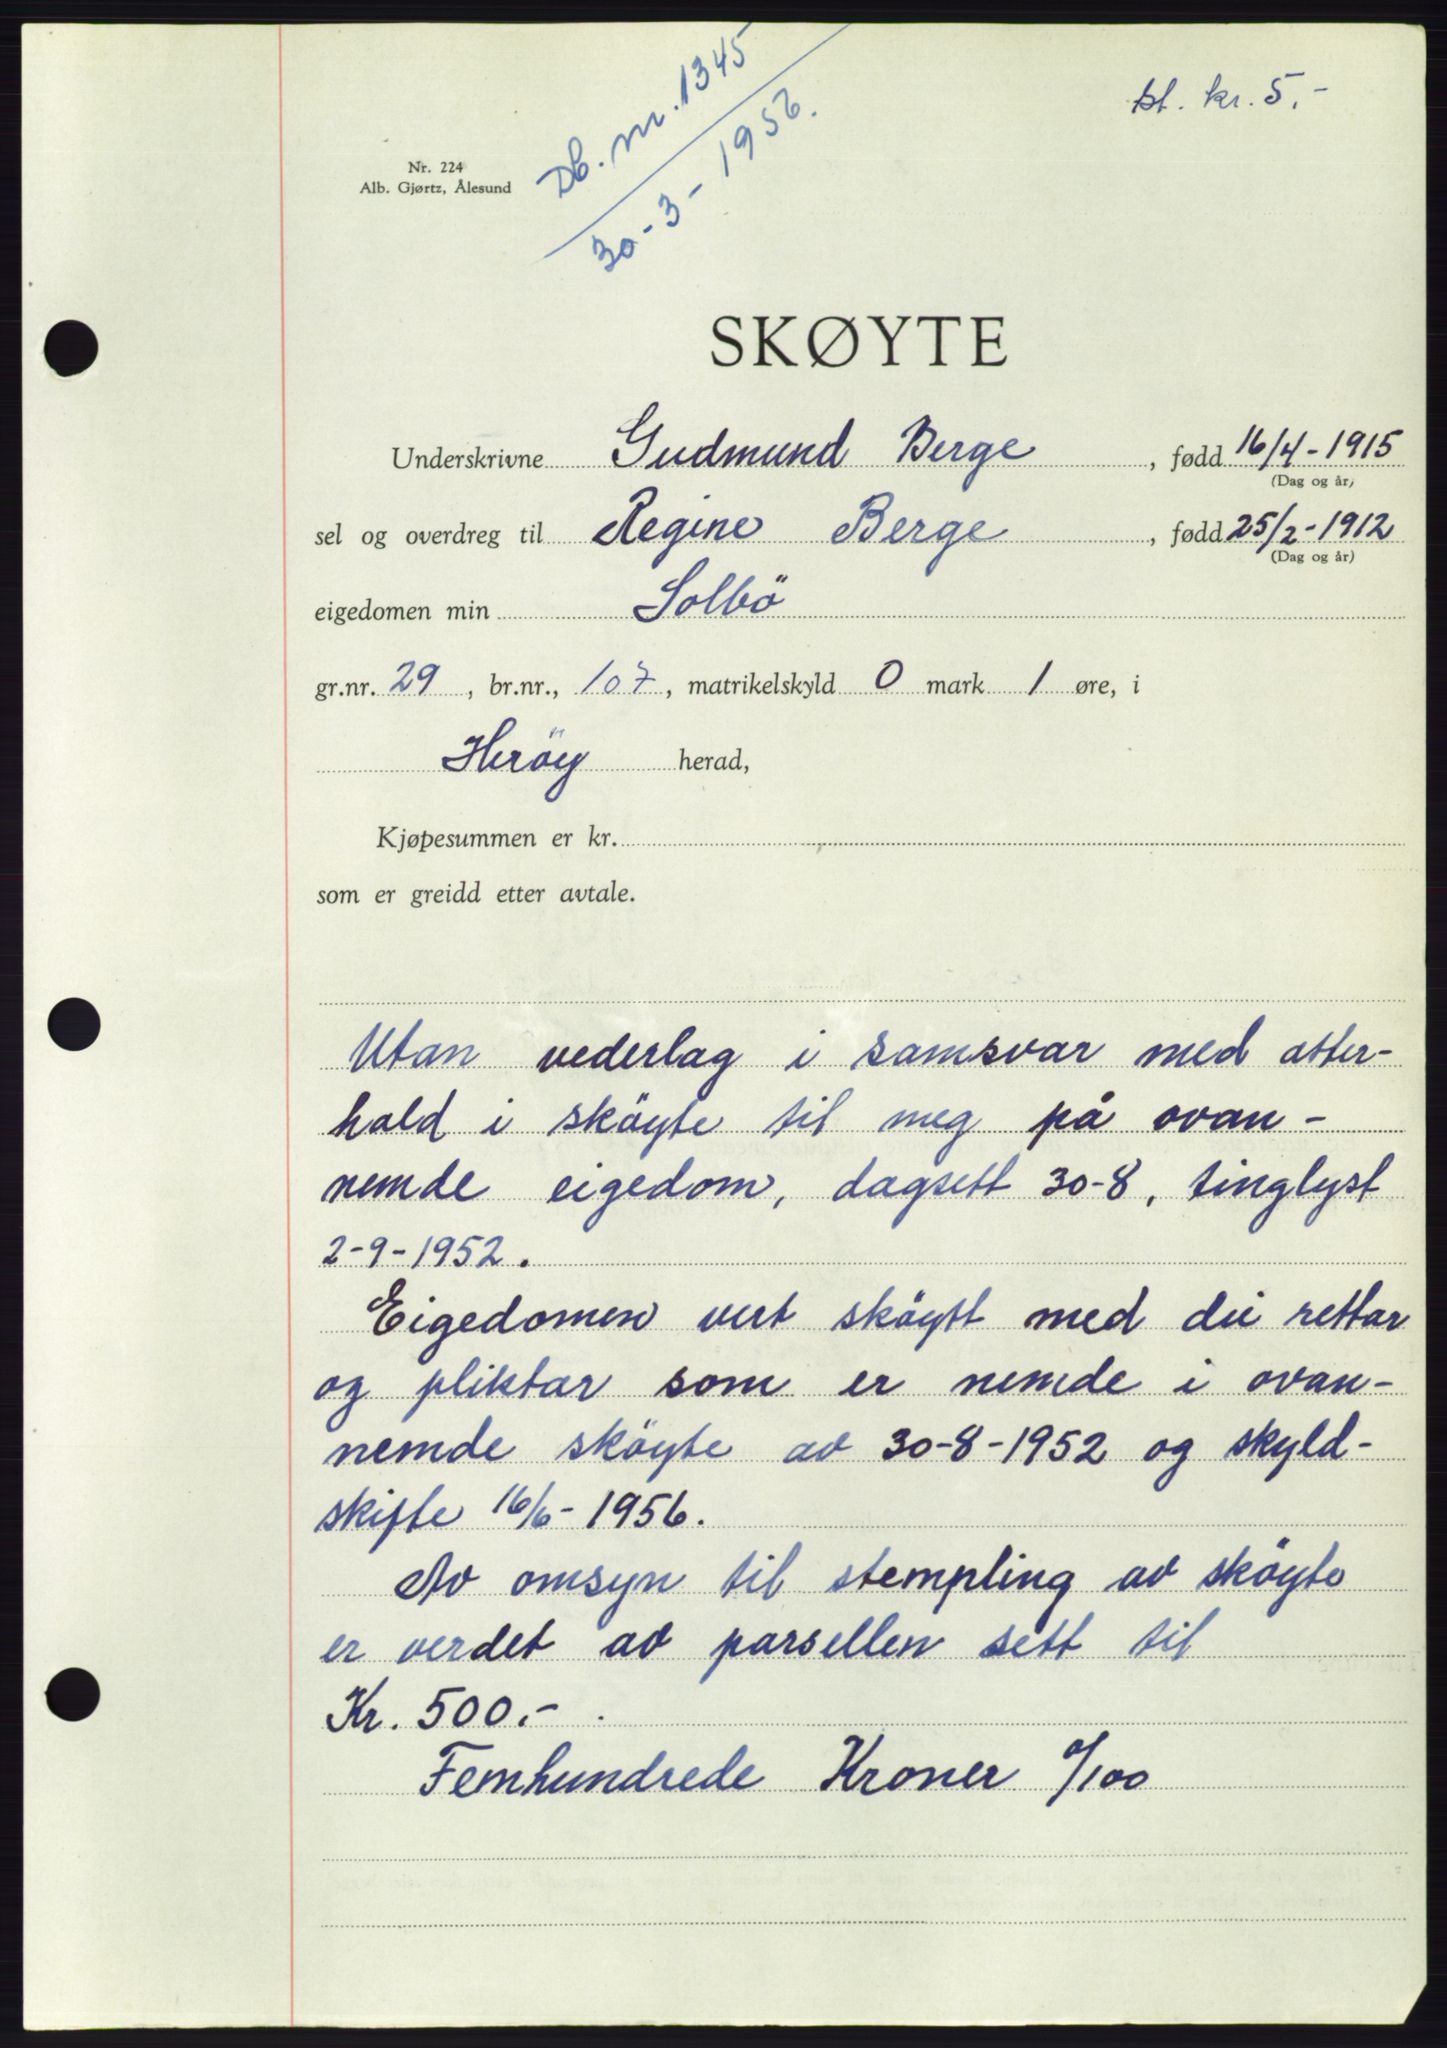 Db. nr. 1345
30-3-1956.
st. kr. 5.-
Nr. 224
Alb. Gjørtz, Ålesund
SKØYTE
Underskrivne Gudmund Berge, fødd 16/4-1915
(Dag og år)
sel og overdreg til Regine Berge, fødd 25/2-1912
(Dag og år)
eigedomen min Solbö
gr.nr. 29, br.nr., 107, matrikelskyld 0 mark 1 øre, i
Heröy herad,
Kjøpesummen er kr.
som er greidd etter avtale.
Utan vederlag i samsvar med atter-
hald i sköyte til meg på ovan-
nemde eigedom, dagsett 30-8, tinglyst
2-9-1952.
Eigedomen vert sköytt med dei rettar
og pliktar som er nemde i ovan-
nemde sköyte av 30-8-1952 og skyld-
skifte 16/6-1956.
Av omsyn til stempling av sköyte
er verdet av parsellen sett til
Kr. 500.-.
Femhundrede Kroner 0/100